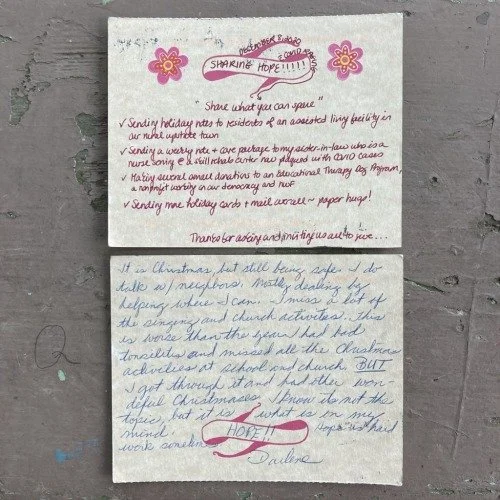 DECEMBER 8, 2020
COVID
SHARING HOPE!!!!!
"Share what you can spare"
✓ Sending holiday notes to residents of an assisted living facility in
our rural upstate town
✓ Sending a weekly note + care package to my sister-in-law who is a
nurse working @ a skill rehab center now plagued with COVID cases
✓ Making several small donations to an Educational Therapy Dog Program,
a nonprofit working on our democracy and
✓ Sending more holiday cards + mail overall ~ paper hugs!
Thanks for asking and inviting us all to give...
It is Christmas, but still being safe. I do
talk w/ neighbors. Mostly dealing by
helping where I can. I miss a lot of
the singing and church activities. This
is worse than the year I had bad
tonsilitis and missed all the Christmas
activities at school and church BUT
I got through it and had other won-
deful Christmases. I know its not the
topic, but it is what is on my
mind. HOPE!! Hope is hard
work sometimes.
Darlene